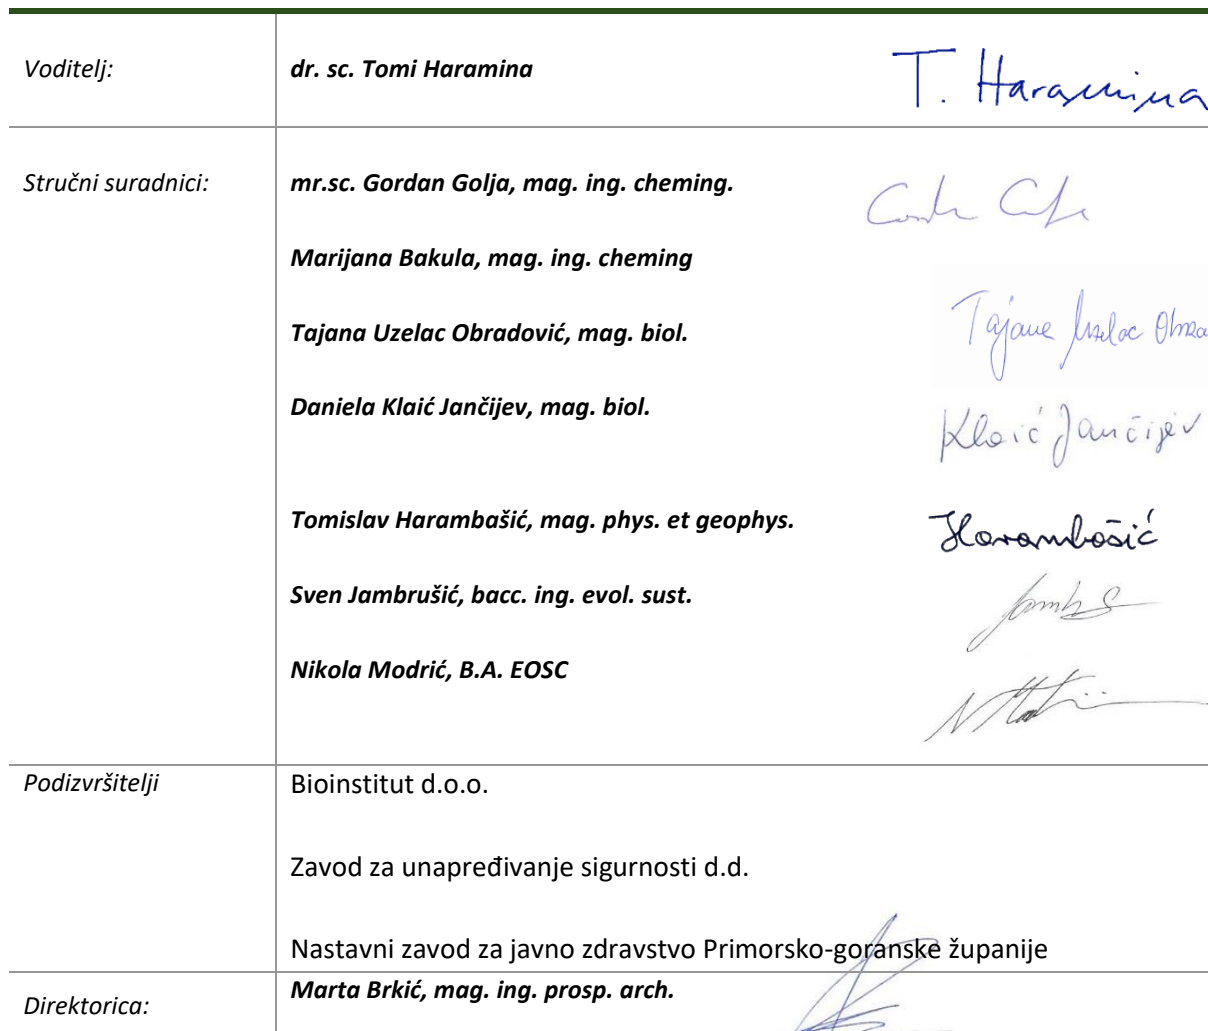 Voditelj: dr. sc. Tomi Haramina T. Haramina
Stručni suradnici: mr.sc. Gordan Golja, mag. ing. cheming.
Marijana Bakula, mag. ing. cheming
Tajana Uzelac Obradović, mag. biol. Tajana Uzelac Obra
Daniela Klaić Jančijev, mag. biol. Klaić Jančijev
Tomislav Harambašić, mag. phys. et geophys. Harambašić
Sven Jambrušić, bacc. ing. evol. sust.
Nikola Modrić, B.A. EOSC
Podizvršitelji Bioinstitut d.o.o.
Zavod za unapređivanje sigurnosti d.d.
Nastavni zavod za javno zdravstvo Primorsko-goranske županije
Direktorica: Marta Brkić, mag. ing. prosp. arch.